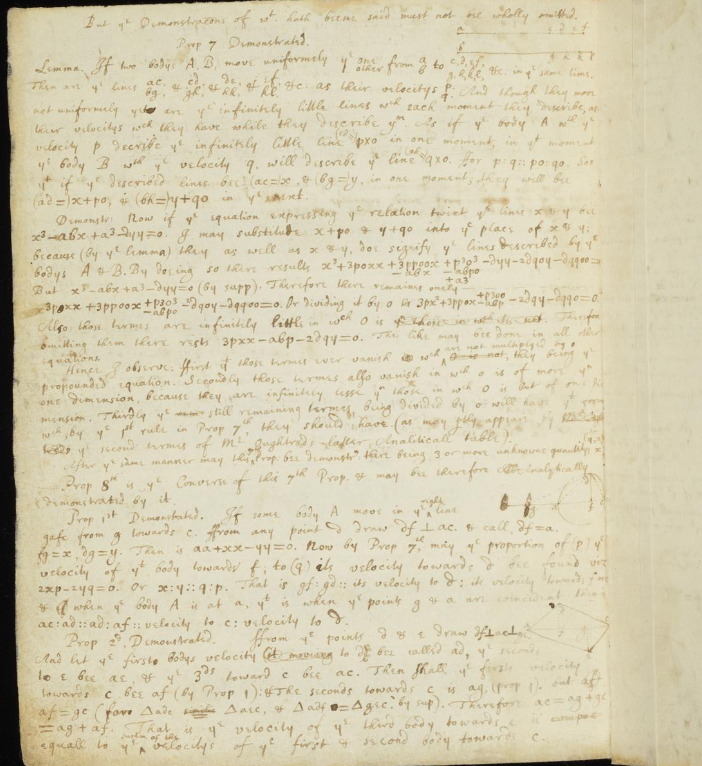 But yᵉ Demonstracons of wᵗ hath beene said must not bee wholly omitted.
Prop 7 Demonstrated.
a c d e f
b g h k l
Lemma. If two bodys A, B, move uniformely yᵉ one/other from a/b to c,d,e,f,/g,h,k,l, &c: in yᵉ same time.
Then are yᵉ lines ac/bg, & cd/gh, & de/hk, & ef/kl, &c: as their velocitys p/q. And though they move
not uniformely yet are yᵉ infinitely little lines wᶜʰ each moment they describe, as
their velocitys wᶜʰ they have while they describe yᵐ. As if yᵉ body A wᵗʰ yᵉ
velocity p describe yᵉ infinitely little line (cd=)p×o in one moment, in yᵗ moment
yᵉ body B wᵗʰ yᵉ velocity q, will describe yᵉ line (gh=)q×o. For p:q::po:qo. Soe
yᵗ if yᵉ described lines bee (ac=)x, & (bg=)y, in one moment, they will bee
(ad=)x+po, & (bh=)y+qo in yᵉ next.
Demonstr: Now if yᵉ equation expressing yᵉ relation twixt yᵉ lines x & y bee
x³-abx+a³-dyy=0. I may substitute x+po & y+qo into yᵉ place of x & y;
because (by yᵉ lemma) they as well as x & y, doe signify yᵉ lines described by yᵉ
bodys A & B. By doeing so there results x³+3poxx+3ppoox+p³o³-dyy-2dqoy-dqqoo=0
-abx -abpo
+a³
But x³-abx+a³-dyy=0 (by supp). Therefore there remaines onely
3poxx+3ppoox+p³o³-2dqoy-dqqoo=0. Or dividing it by o tis 3px²+3ppox+p³oo-2dqy-dqqo=0.
-abpo -abp
Also those termes are infinitely little in wᶜʰ o is Therefore
omitting them there rests 3pxx-abp-2dqy=0. The like may bee done in all other
equations.
Hence I observe: ffirst yᵗ those termes ever vanish wᶜʰ are not multiplyed by o, they being yᵉ
propounded equation. Secondly those termes also vanish in wᶜʰ o is of more yⁿ
one dimension, because they are infinitely lesse yⁿ those in wᶜʰ o is but of one di-
mension. Thirdly yᵉ still remaining termes being divided by o will have yᵗ form
wᶜʰ by yᵉ 1ˢᵗ rule in Prop 7ᵗʰ, they should have (as may ptly appeare by
yᵉ second termes of Mʳ Oughtreds latter Analiticall table).
After yᵉ same manner may this Prop. bee demonstrᵈ. there being 3 or more unknowne quantitys x
Prop 8ᵗʰ is yᵉ Converse of this 7ᵗʰ Prop. & may bee therefore Analytically
demonstrated by it.
Prop 1ˢᵗ Demonstrated. If some body A move in yᵉ right line
gafc from g towards c. ffrom any point d draw df⊥ac. & call, df=a.
fg=x, dg=y. Then is aa+xx-yy=0. Now by Prop 7ᵗʰ, may yᵉ proportion of (p) yᵉ
velocity of yᵗ body towards f, to (q) its velocity towards d bee found viz
2xp-2yq=0. Or x:y::q:p. That is gf:gd:: its velocity to d: its velocity towards f
& when yᵉ body A is at a, yᵗ is when yᵉ points g & a are coincident then
ac:ad::ad:af::velocity to c: velocity to d.
Prop 2ᵈ, Demonstrated. ffrom yᵉ points d & e draw df⊥ac⊥
And let yᵉ firste bodys velocity to d bee called ad, yᵉ seconds
to e bee ae, & yᵉ 3ᵈˢ toward c bee ac. Then shall yᵉ firsts velocity
towards c bee af (by Prop 1): & The seconds towards c is ag, (prop 1). but af
af=gc (for Δadc Δaec, & Δadf=Δgec. by sup). Therefore ac=ag+gc
=ag+af. That is yᵉ velocity of yᵉ third body towards c is compos
equall to yᵉ summ of the velocitys of yᵉ first & second body towards c.